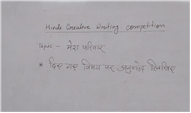 Hindi Creative Writing Competition
Topic :- मेरा परिवार
* दिए गए विषय पर अनुच्छेद लिखिए